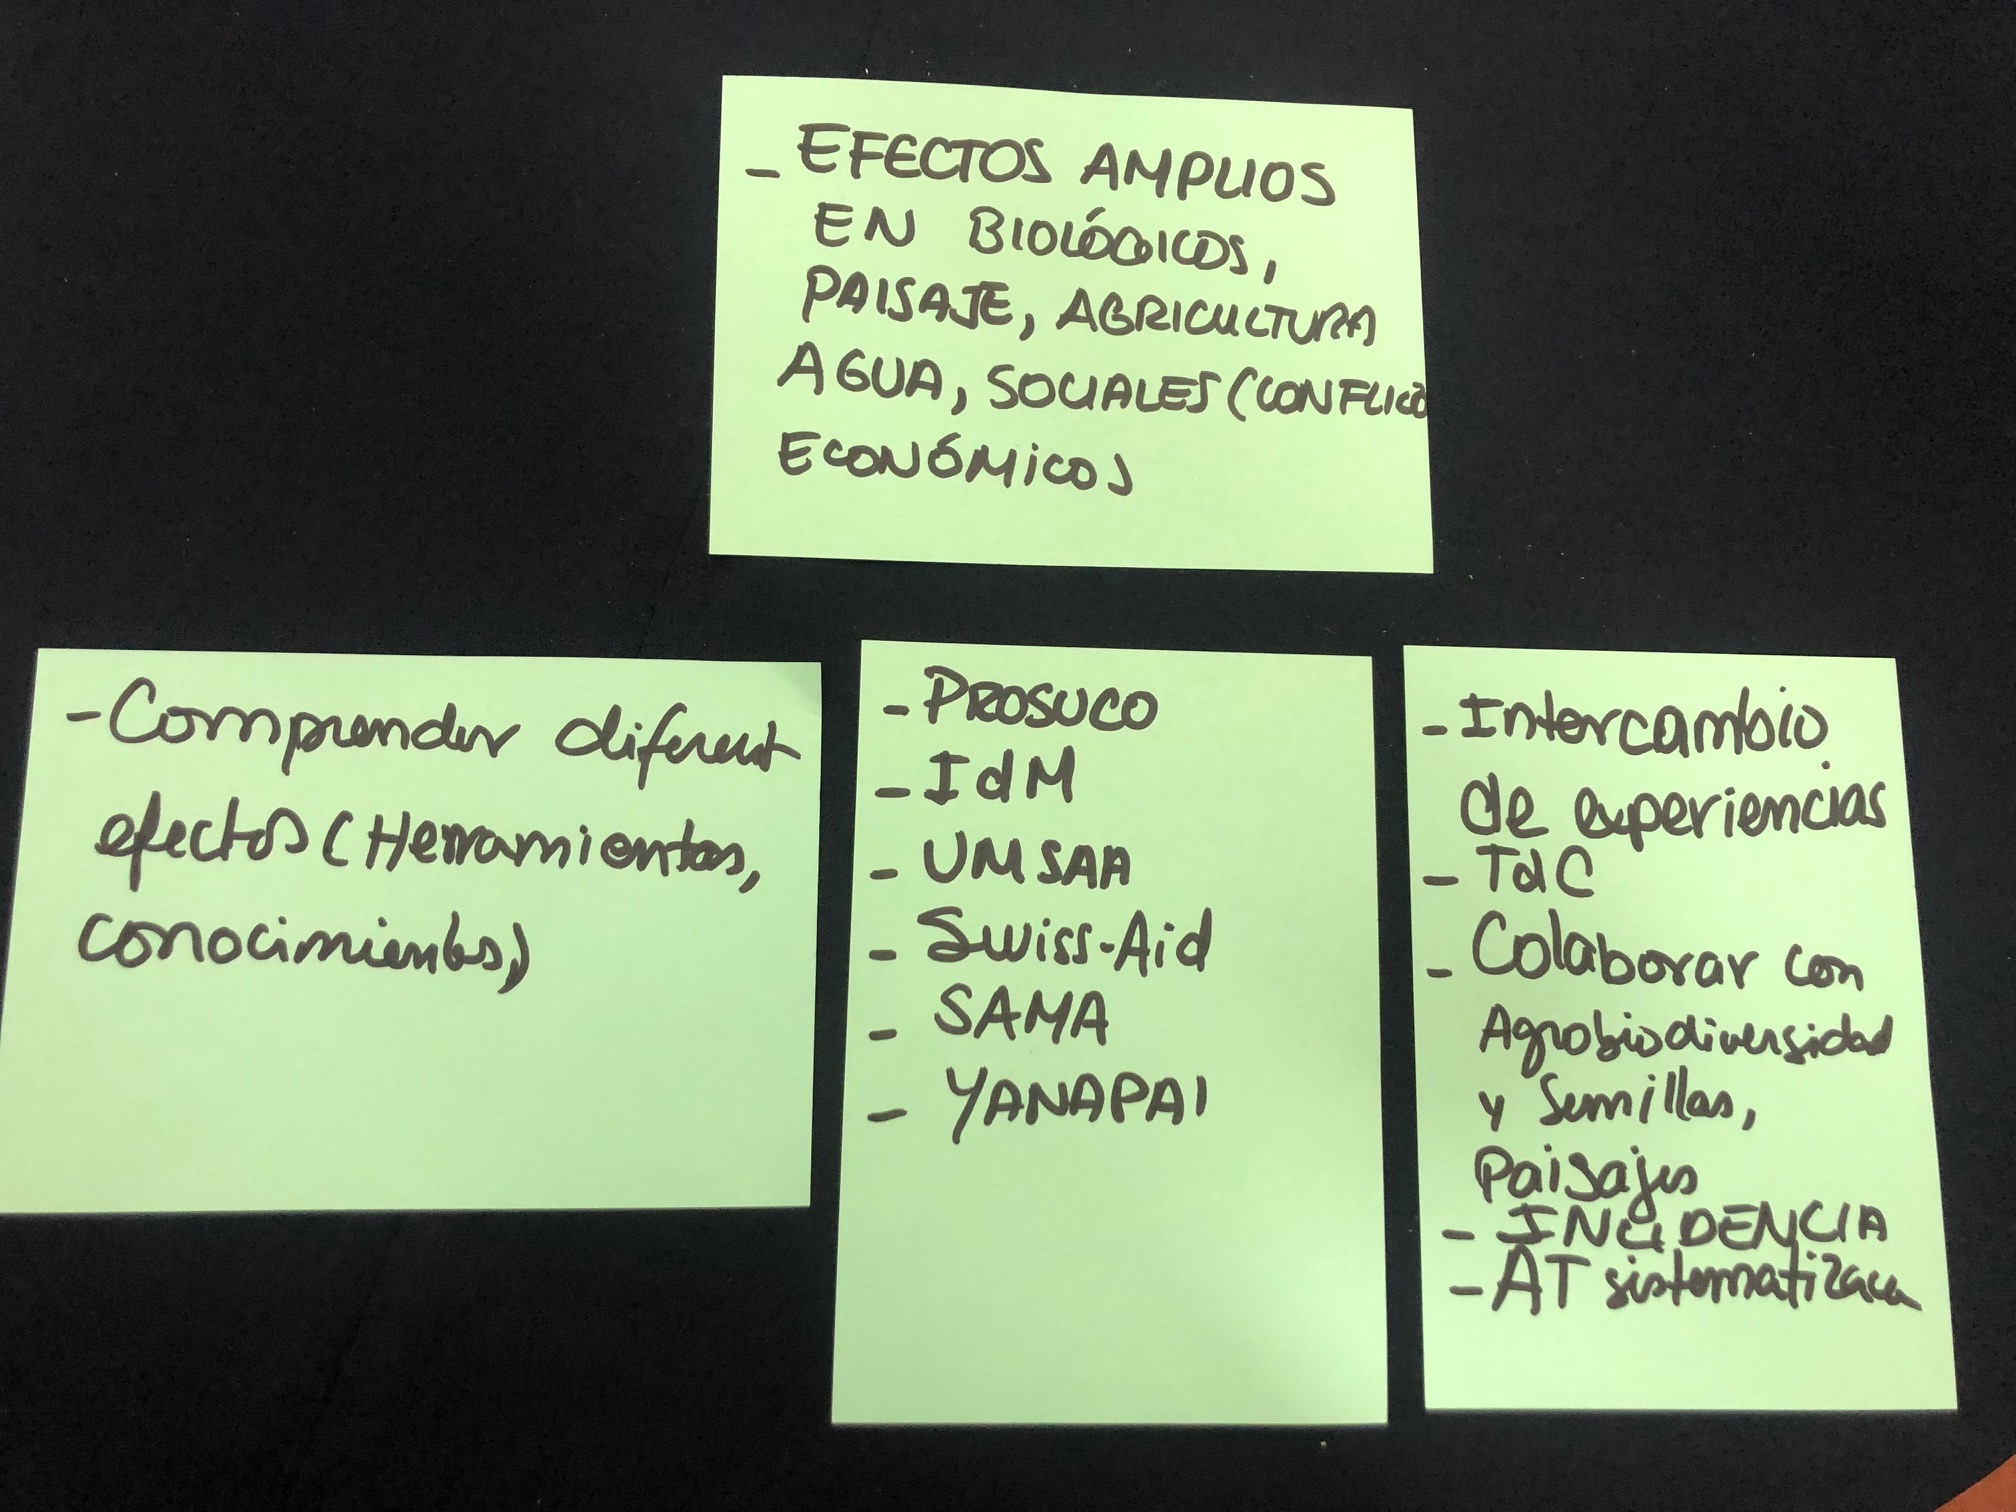 - EFECTOS AMPLIOS
EN BIOLÓGICOS,
PAISAJE, AGRICULTURA
AGUA, SOCIALES (CONFLICTO
ECONÓMICOS
- Comprender diferent
efectos (Herramientas,
conocimientos,)
- PROSUCO
- IdM
- UMSAA
- Swiss-Aid
- SAMA
- YANAPAI
- Intercambio
de experiencias
- TdC
- Colaborar con
Agrobiodiversidad
y Semillas,
Paisajes
- INCIDENCIA
- AT